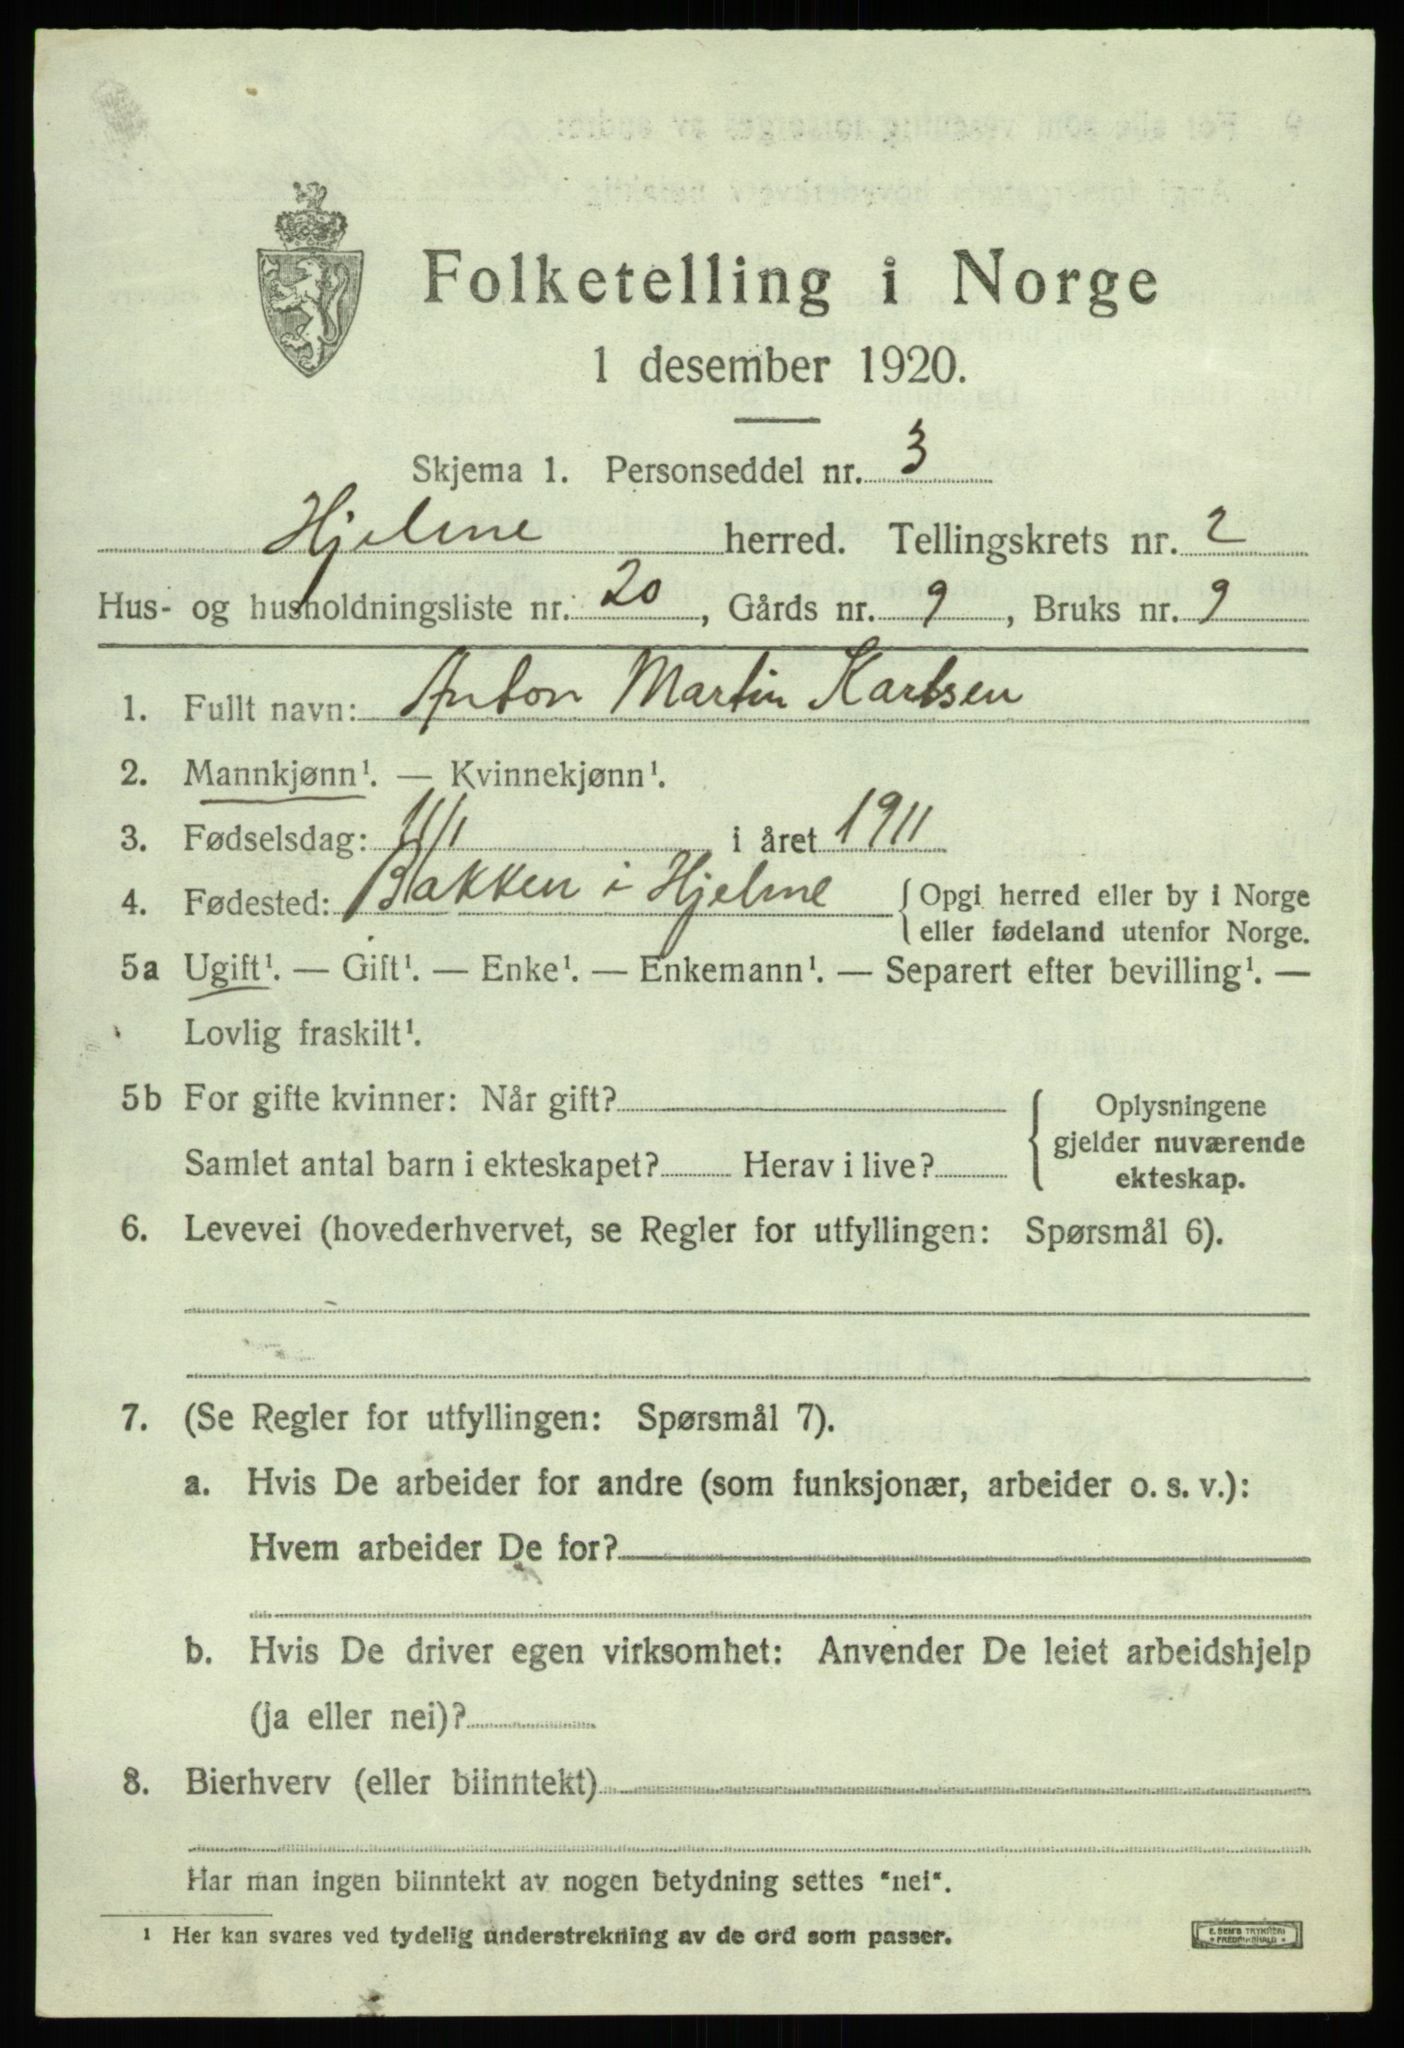 Folketelling i Norge
1 desember 1920.
Skjema 1. Personseddel nr. 3
Hjelme herred. Tellingskrets nr. 2
Hus- og husholdningsliste nr. 20, Gårds nr. 9, Bruks nr. 9
1. Fullt navn: Anton Martin Karlsen
2. Mannkjønn¹. — Kvinnekjønn¹.
3. Fødselsdag: 11/1 i året 1911
4. Fødested: Bakken i Hjelme { Opgi herred eller by i Norge
eller fødeland utenfor Norge.
5a Ugift¹. — Gift¹. — Enke¹. — Enkemann¹. — Separert efter bevilling¹. —
Lovlig fraskilt¹.
5b For gifte kvinner: Når gift? { Oplysningene
gjelder nuværende
Samlet antal barn i ekteskapet? Herav i live?
ekteskap.
6. Levevei (hovederhvervet, se Regler for utfyllingen: Spørsmål 6).
7. (Se Regler for utfyllingen: Spørsmål 7).
a. Hvis De arbeider for andre (som funksjonær, arbeider o. s. v.):
Hvem arbeider De for?
b. Hvis De driver egen virksomhet: Anvender De leiet arbeidshjelp
(ja eller nei)?
8. Bierhverv (eller biinntekt)
Har man ingen biinntekt av nogen betydning settes "nei".
¹ Her kan svares ved tydelig understrekning av de ord som passer.
E. SEM'S TRYKKERI
FREDRIKSHALD